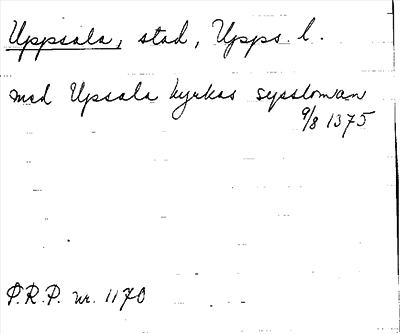 Uppsala, stad, Upps. l.
med Upsala kyrkas syssloman
9/8 1375
P.R.P. nr. 1170